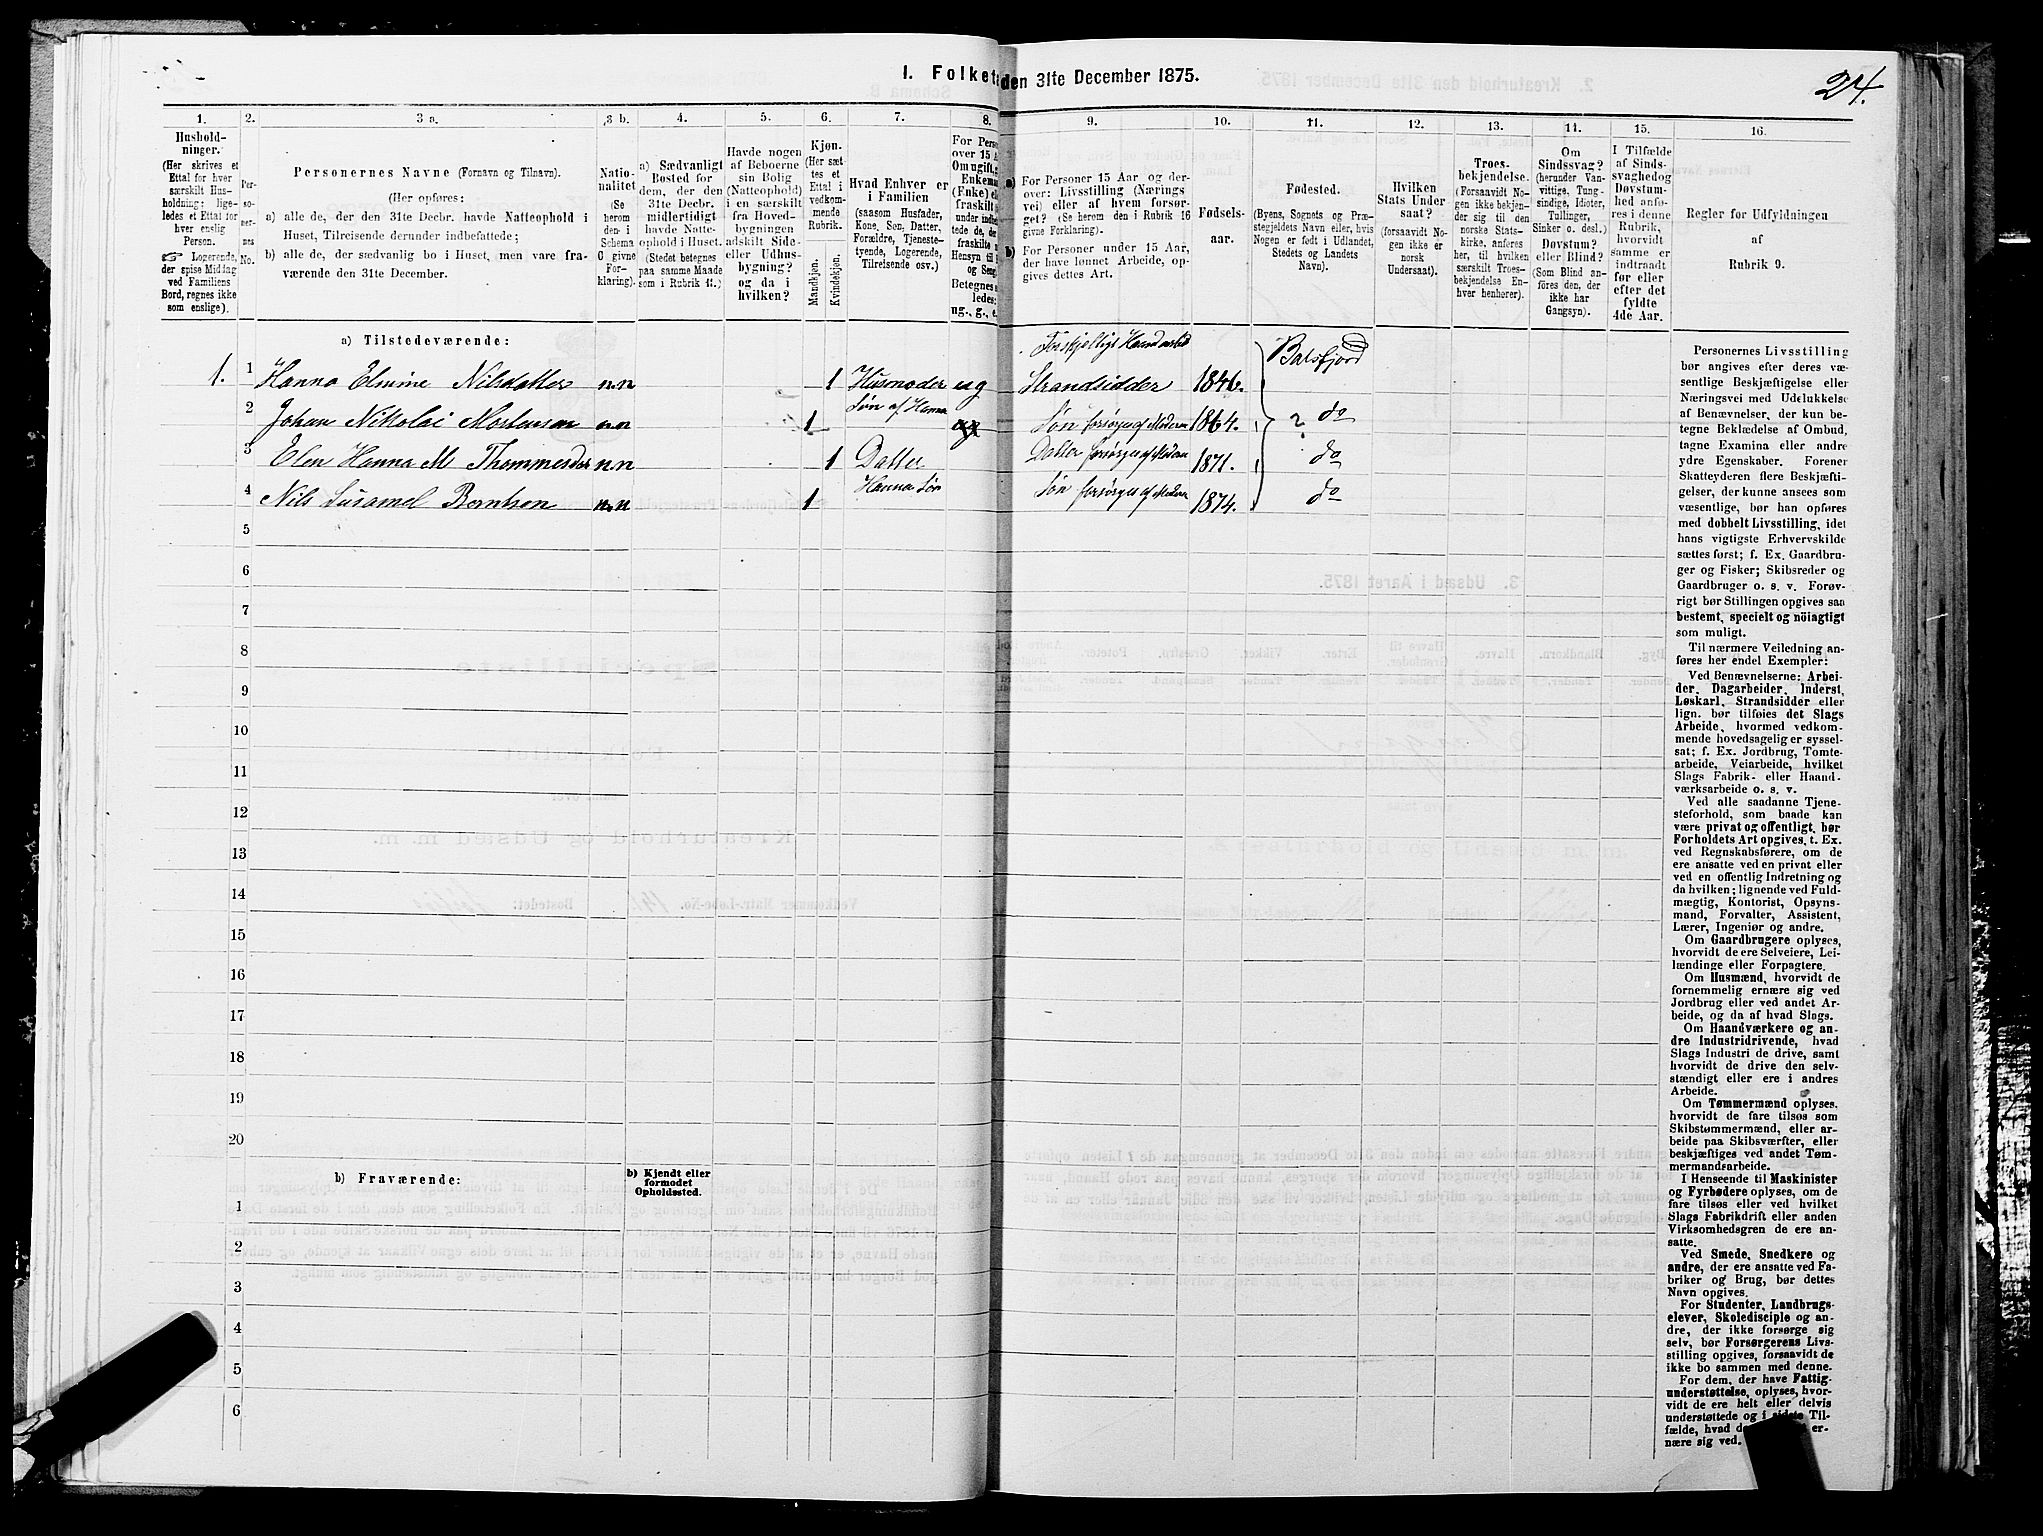 1. Folket
den 31te December 1875.
24.
1.
2.
3 a.
3 b.
4.
5.
6.
7.
8.
9.
10.
11.
12.
13.
14.
15.
16.
Hushold-
ninger.
(Her skrives et
Ettal for hver
særskilt Hus-
holdning; lige-
ledes et Ettal for
hver enslig
Person.
☞ Logerende,
der spise Middag
ved Familiens
Bord, regnes ikke
som enslige).
Per-
soner-
nes
No.
Personernes Navne (Fornavn og Tilnavn).
(Her opføres:
a) alle de, der den 31te Decbr. havde Natteophold i
Huset, Tilreisende derunder indbefattede;
b) alle de, der sædvanlig bo i Huset, men vare fra-
værende den 31te December.
Natio-
nalitet
(Se
herom
den i
Schema
C givne
For-
klaring).
a) Sædvanligt
Bosted for
dem, der den
31te Decbr.
midlertidigt
havde Natte-
ophold i Huset.
(Stedet betegnes
paa samme Maade
som i Rubrik 11.)
Havde nogen
af Beboerne
sin Bolig
(Natteophold)
i en særskilt
fra Hoved-
bygningen
adskilt Side-
eller Udhus-
bygning?
og da i
hvilken?
Kjøn.
(Her sæt-
tes et
Ettal i
vedkom-
mende
Rubrik.
Mandkjøn.
Kvindekjøn.
Hvad Enhver er
i Familien
(saasom Husfader,
Kone, Søn, Datter,
Forældre, Tjeneste-
tyende, Logerende,
Tilreisende osv.)
For Perso
over 15 A
Om ugift, g
Enkema
(Fnke) el
fraskilt
ug., g., e.
a)
For Personer 15 Aar og der-
over: Livsstilling (Nærings
vei) eller af hvem forsør-
get? (Se herom den i Rubrik 16
givne Forklaring).
b) For Personer under 15 Aar,
der have lønnet Arbeide, op-
gives dettes Art.
Fødsels-
aar.
Fødested.
(Byens, Sognets og Præ-
stegjeldets Navn eller, hvis
Nogen er født i Udlandet,
Stedets og Landets
Navn).
Hvilken
Stats Under
saat?
(forsaavidt No-
gen ikke er
norsk
Undersaat).
Troes-
bekjendelse.
(Forsaavidt No-
gen ikke bekjen-
der sig til den
norske Stats-
kirke, anføres
her, til hvilken
særskilt Troes-
bekjendelse En-
hver henhører).
Om
Sindssvag?
(herunder Van-
vittige, Tung-
sindige, Idioter,
Tullinger,
Sinker o. desl.)
Døvstum?
eller Blind?
(Som Blind an-
föres den, der
ikke har
Gangsyn).
I Tilfælde
af Sinds-
svaghed og
Døvstum-
hed anfø-
res i denne
Rubrik,
hvorvidt
samme er
indtraadt
før eller
efter det
fyldte
4de Aar.
Regler for Udfyldningen
af
Rubrik 9.
a) Tilstedeværende:
1. 1 Hanna Elmine Nilsdatter n.n 1 Husmoder ug Forskjelligt Haandarbeid Strandsidder 1846. Balsfjord
2 Johan Nikolai Mortensen n.n 1 Søn af Hanna ug Søn forsørges af Moderen 1864. ? do
3 Elen Hanna M Thommesdtr n.n 1 Datter Datter forsørges af Moderen 1871. do
4 Nils Susamel Berntsen n.n 1 Hanna Søn Søn forsørges af Moderen 1874. do
5
6
7
8
9
10
11
12
13
14
15
16
17
18
19
20
b) Fraværende:
b) Kjendt eller
formodet
Opholdssted.
1
2
3
4
5
6
Personernes Livsstilling
bør angives efter deres væ-
sentlige Beskjæftigelse eller
Næringsvei med Udelukkelse
af Benævnelser, der kun be-
tegne Beklædelse af Ombud,
tagne Examina eller andre
ydre Egenskaber. Forener
Skatteyderen flere Beskjæfti-
gelser, der kunne ansees som
væsentlige, bør han opføres
med dobbelt Livsstilling, idet
hans vigtigste Erhvervskilde
sættes først; f. Ex. Gaardbru-
ger og Fisker; Skibsreder og
Gaardbruger o. s. v. Forøv-
rigt bør Stillingen opgives saa
bestemt, specielt og nöiagtigt
som muligt.
Til nærmere Veiledning an-
føres her endel Exempler:
Ved Benævnelserne: Arbei-
der, Dagarbeider, Inderst,
Løskarl, Strandsidder eller
lign. bør tilføies det Slags
Arbeide, hvormed vedkom-
mende hovedsagelig er syssel-
sat; f. Ex. Jordbrug, Tomte-
arbeide, Veiarbeide, hvilket
Slags Fabrik- eller Haand-
værksarbeide o. s. v.
Ved alle saadanne Tjene-
steforhold, som baade kan
være privat og offentligt, bør
Forholdets Art opgives, t. Ex.
ved Regnskabsførere, om de
ere ansatte ved en privat eller
ved en offentlig Indretning og
da hvilken; lignende ved Fuld-
mægtig, Kontorist, Opsyns-
mand, Forvalter, Assistent,
Lærer, Ingeniør og andre.
Om Gaardbrugere oplyses,
hvorvidt de ere Selveiere, Lei-
lændinge eller Forpagtere.
Om Husmænd, hvorvidt de
fornemmelig ernære sig ved
Jordbrug eller ved andet Ar-
beide, og da af hvad Slags.
Om Haandværkere og an-
dre Industridrivende, hvad
Slags Industri de drive, samt
hvorvidt de drive den selv-
stændigt eller ere i andres
Arbeide.
Om Tømmermænd oplyses,
hvorvidt de fare tilsøs som
Skibstømmermænd, eller ar-
beide paa Skibsværfter, eller
beskjæftiges ved andet Tøm-
mermandsarbeide.
I Henseende til Maskinister
og Fyrbødere oplyses, om de
fare tilsøs eller ved hvilket
Slags Fabrikdrift eller anden
Virksomhedsgren de ere an-
satte.
Ved Smede, Snedkere og
andre, der ere ansatte ved Fa-
briker og Brug, bør dettes
Navn opgives.
For Studenter, Landbrugs-
elever, Skoledisciple og an-
dre, der ikke forsørge sig
selv, bør Forsørgerens Livs-
stilling opgives, forsaavidt de
ikke bo sammen med denne.
For dem, der have Fattig-
understøttelse, oplyses, hvor-
vidt de ere helt eller delvis
understøttede og i sidste Til-
fælde, hvad de er-
nære sig ved.